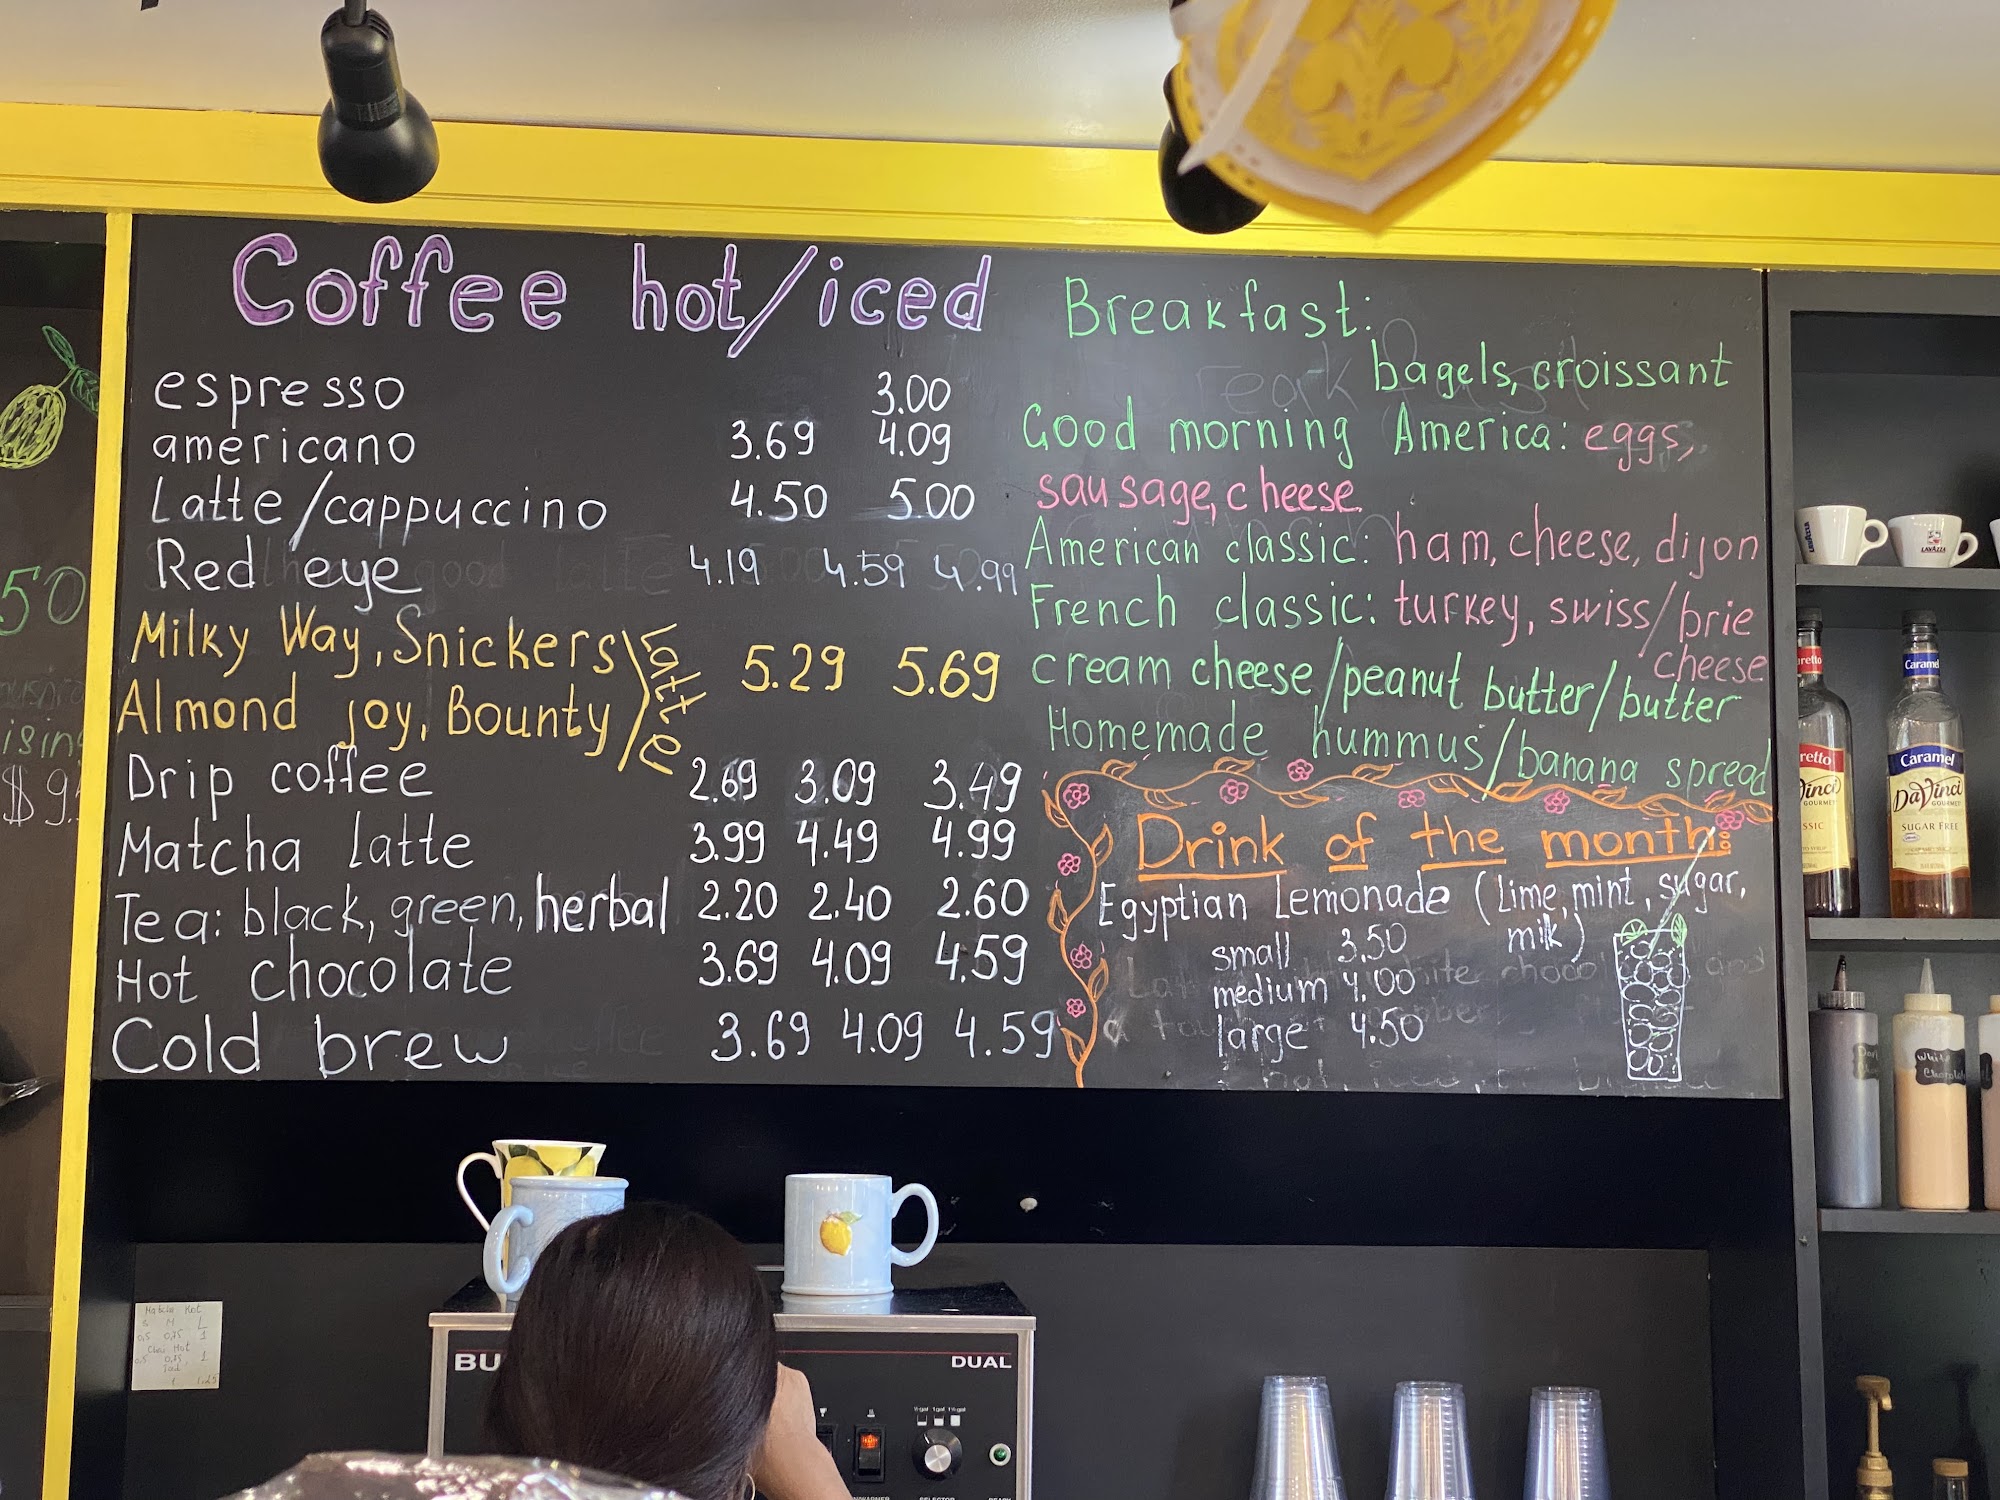 Coffee hot/iced
espresso 3.00
americano 3.69 4.09
Latte/cappuccino 4.50 5.00
Red eye 4.19 4.59 4.99
Milky Way, Snickers
Almond joy, Bounty
Latte
5.29 5.69
Drip coffee 2.69 3.09 3.49
Matcha latte 3.99 4.49 4.99
Tea: black, green, herbal 2.20 2.40 2.60
Hot chocolate 3.69 4.09 4.59
Cold brew 3.69 4.09 4.59
Breakfast:
bagels, croissant
Good morning America: eggs,
sausage, cheese
American classic: ham, cheese, dijon
French classic: turkey, swiss/brie
cheese
cream cheese/peanut butter/butter
Homemade hummus/banana spread
Drink of the month:
Egyptian Lemonade (lime, mint, sugar,
milk)
small 3.50
medium 4.00
large 4.50
50
$9.
LAVAZZA
LAVAZZA
Caramel
Caramel
DaVinci
GOURMET
SUGAR FREE
White
Chocolate
BU
DUAL